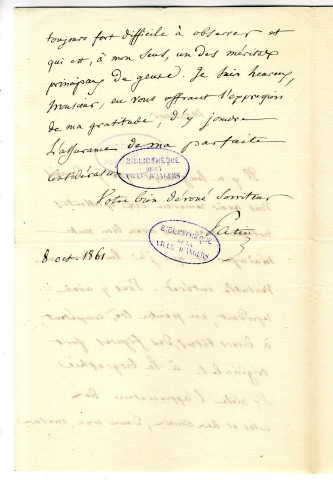 toujours fort difficile à observer et
qui est, à mon sens, un des mérites
principaux du genre. Je suis heureux,
Monsieur, en vous offrant l'expression
de ma gratitude, d'y joindre
l'assurance de ma parfaite
considération
BIBLIOTHÈQUE
DE LA
VILLE D'ANGERS
Votre bien dévoué serviteur
BIBLIOTHÈQUE
DE LA
VILLE D'ANGERS
8 oct. 1861